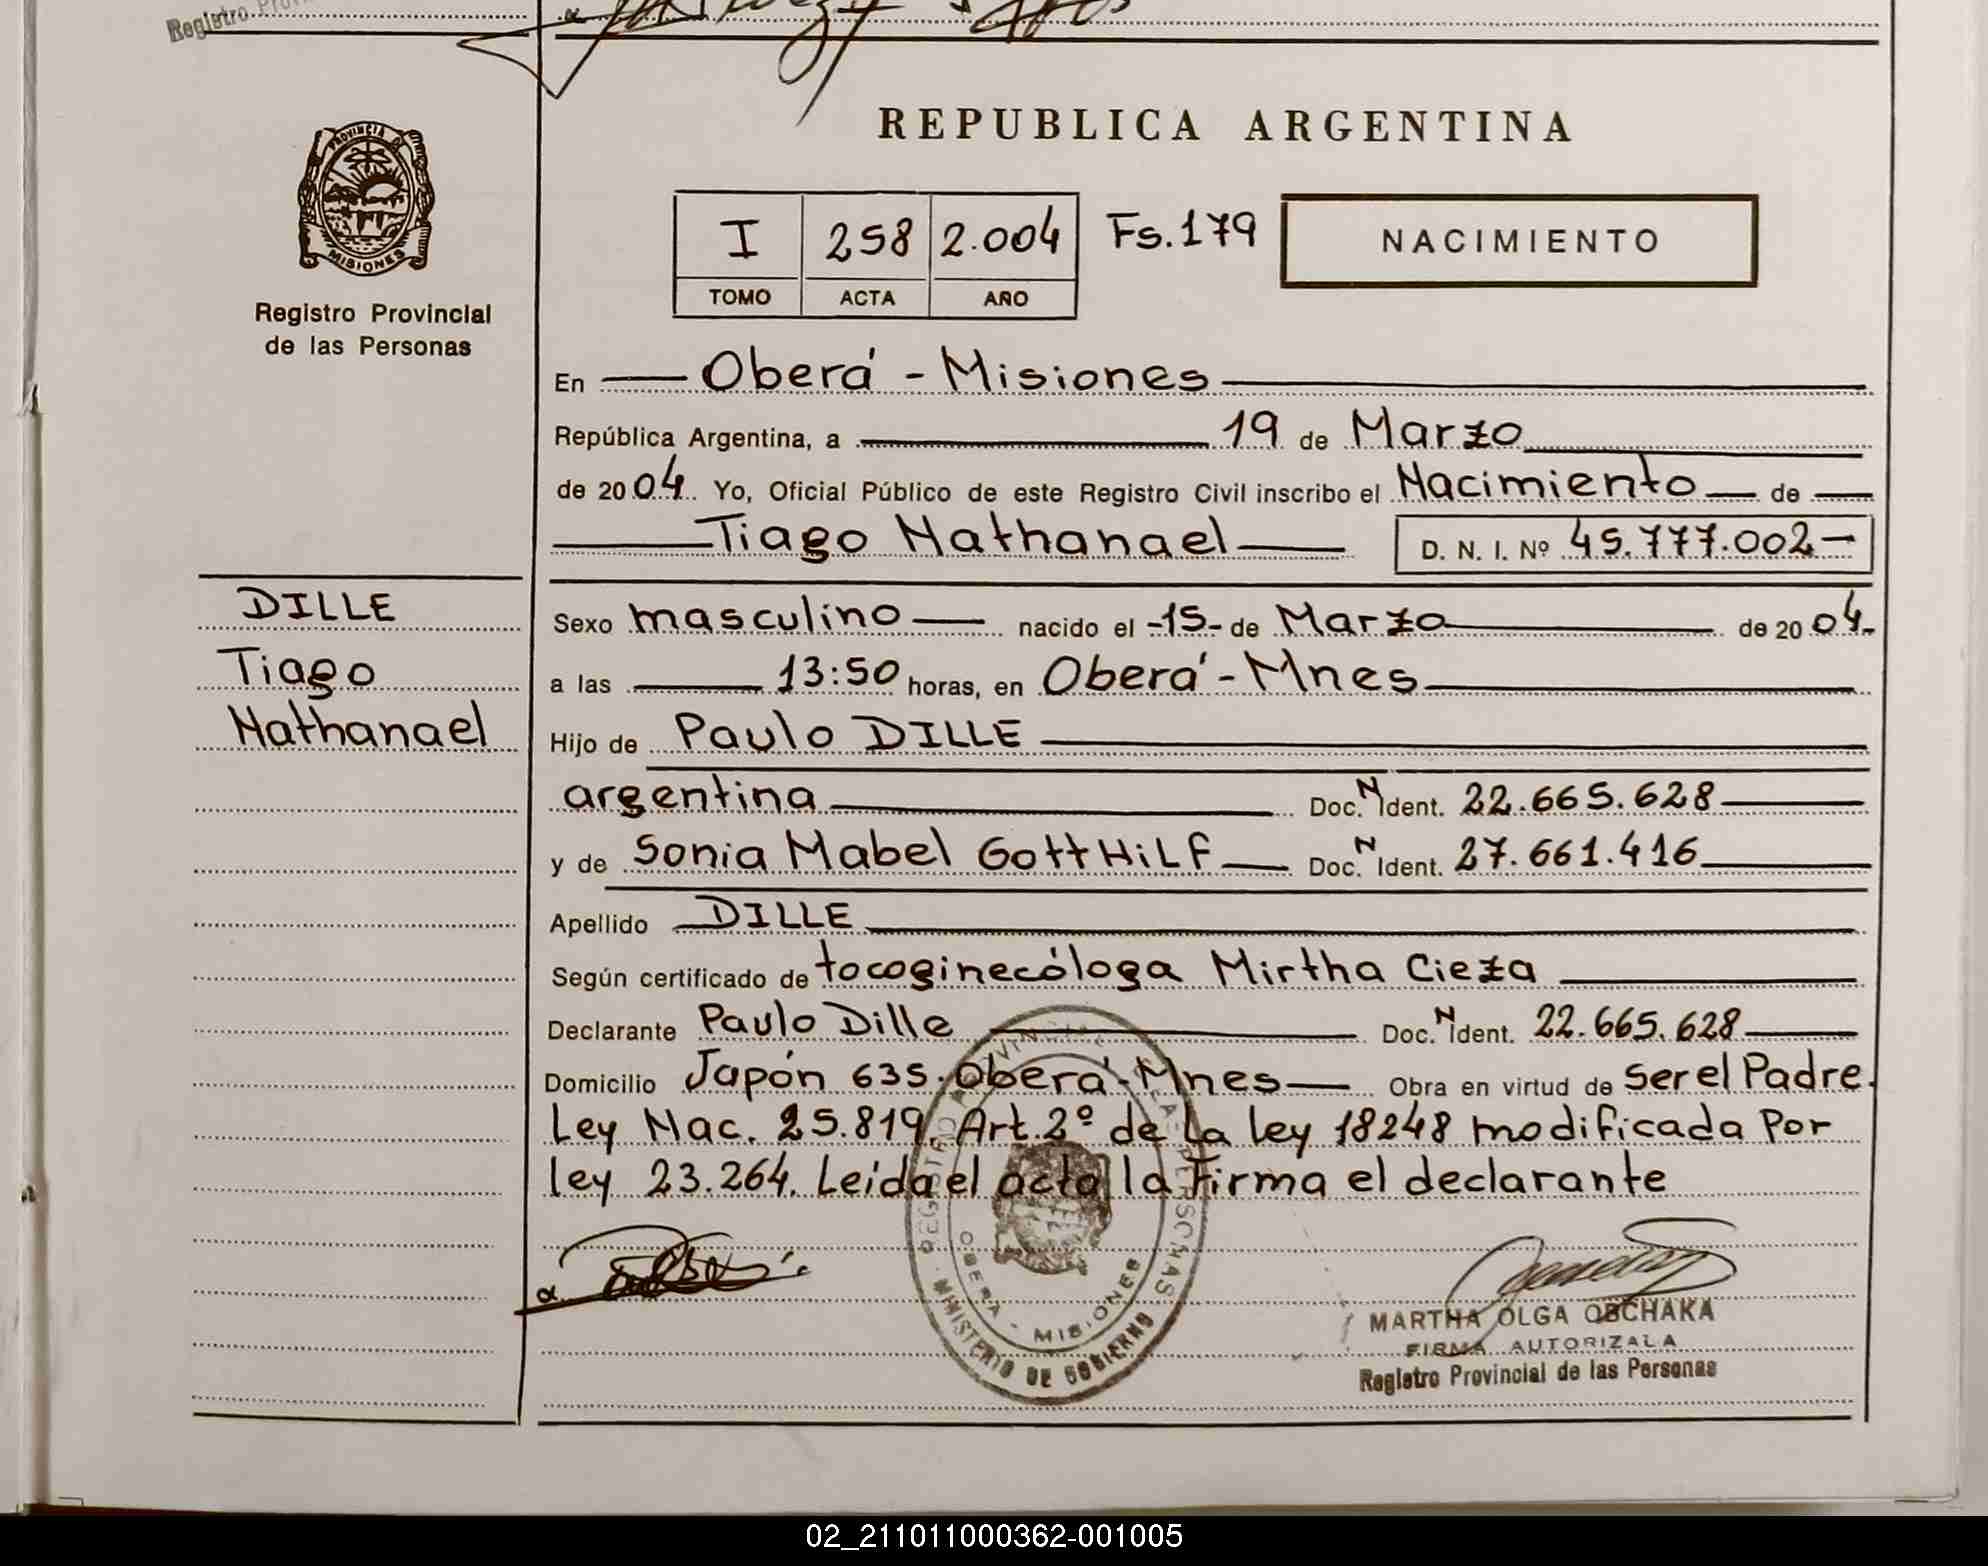 Registro
REPUBLICA ARGENTINA
PROVINCIA DE
MISIONES
Registro Provincial
de las Personas
I 258 2.004 Fs.179
TOMO ACTA AÑO
NACIMIENTO
En Oberá - Misiones
República Argentina, a 19 de Marzo
de 2004. Yo, Oficial Público de este Registro Civil inscribo el Nacimiento de
Tiago Nathanael D. N. I. Nº 45.777.002-
DILLE
Tiago
Nathanael
Sexo masculino nacido el -15- de Marzo de 2004.
a las 13:50 horas, en Oberá - Mnes
Hijo de Paulo DILLE
argentina Doc. N Ident. 22.665.628
y de Sonia Mabel GottHiLf Doc. N Ident. 27.661.416
Apellido DILLE
Según certificado de tocoginecóloga Mirtha Cieza
Declarante Paulo Dille Doc. N Ident. 22.665.628
Domicilio Japón 635. Oberá - Mnes Obra en virtud de Ser el Padre.
Ley Nac. 25.819. Art. 2º de la ley 18248 modificada Por
ley 23.264. Leida el acta la Firma el declarante
REGISTRO PROVINCIAL DE LAS PERSONAS
OBERA - MISIONES
MINISTERIO DE GOBIERNO
MARTHA OLGA OBCHAKA
FIRMA AUTORIZALA
Registro Provincial de las Personas
02_211011000362-001005